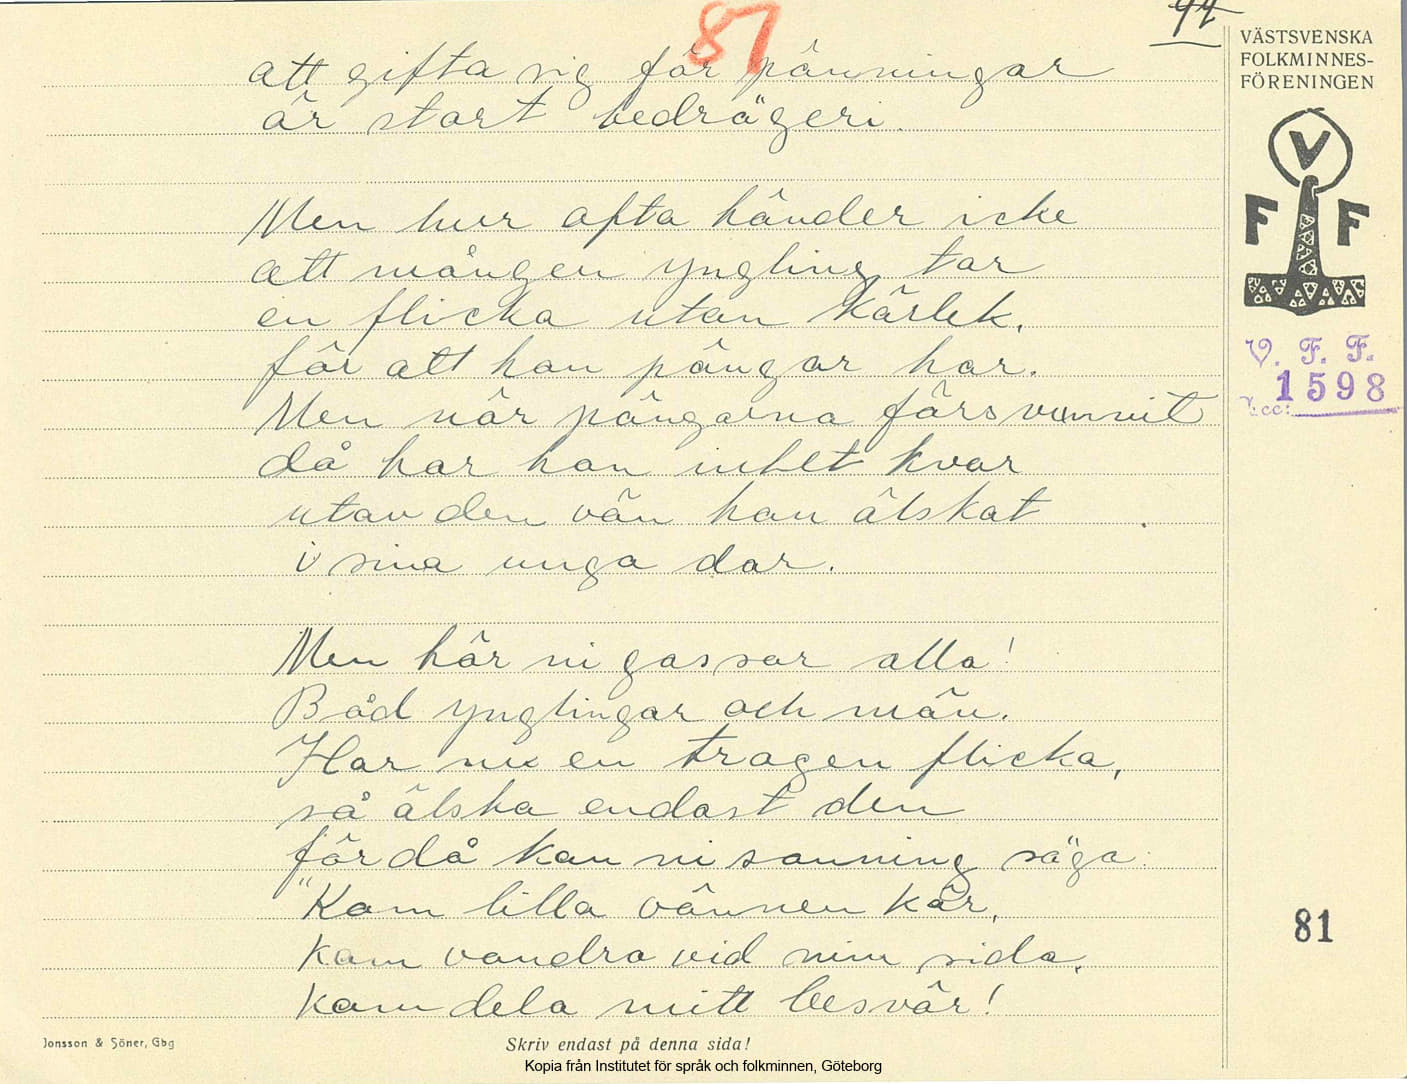 87
94
VÄSTSVENSKA
FOLKMINNES-
FÖRENINGEN
V
F F
V. F. F.
1598
Acc:
att gifta sig för pänningar
är stort bedrägeri.
Men hur ofta händer icke
att mången yngling tar
en flicka utan kärlek.
för att hon pängar har.
Men när pängarna försvunnit
då har han intet kvar
utan den vän han älskat
i sina unga dar.
Men hör ni gossar alla!
Båd ynglingar och män.
Har nu en trogen flicka,
så älska endast den
för då kan ni sanning säga:
"Kom lilla vännen kär,
kom vandra vid min sida.
kom dela mitt besvär!
81
Jonsson & Söner, Gbg
Skriv endast på denna sida!
Kopia från Institutet för språk och folkminnen, Göteborg